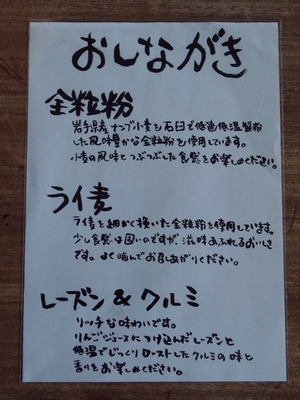 おしながき
全粒粉
岩手県産ナンブ小麦を石臼で低速低温製粉
した風味豊かな全粒粉を使用しています。
小麦の風味とつぶつぶした食感をお楽しみください。
ライ麦
ライ麦を細かく挽いた全粒粉を使用しています。
少し食感は固いのですが、滋味あふれるおいしさ
です。よく噛んでお召しあがりください。
レーズン & クルミ
リッチな味わいです。
りんごジュースにつけ込んだレーズンと
低温でじっくりローストしたクルミの味と
香りをお楽しみください。